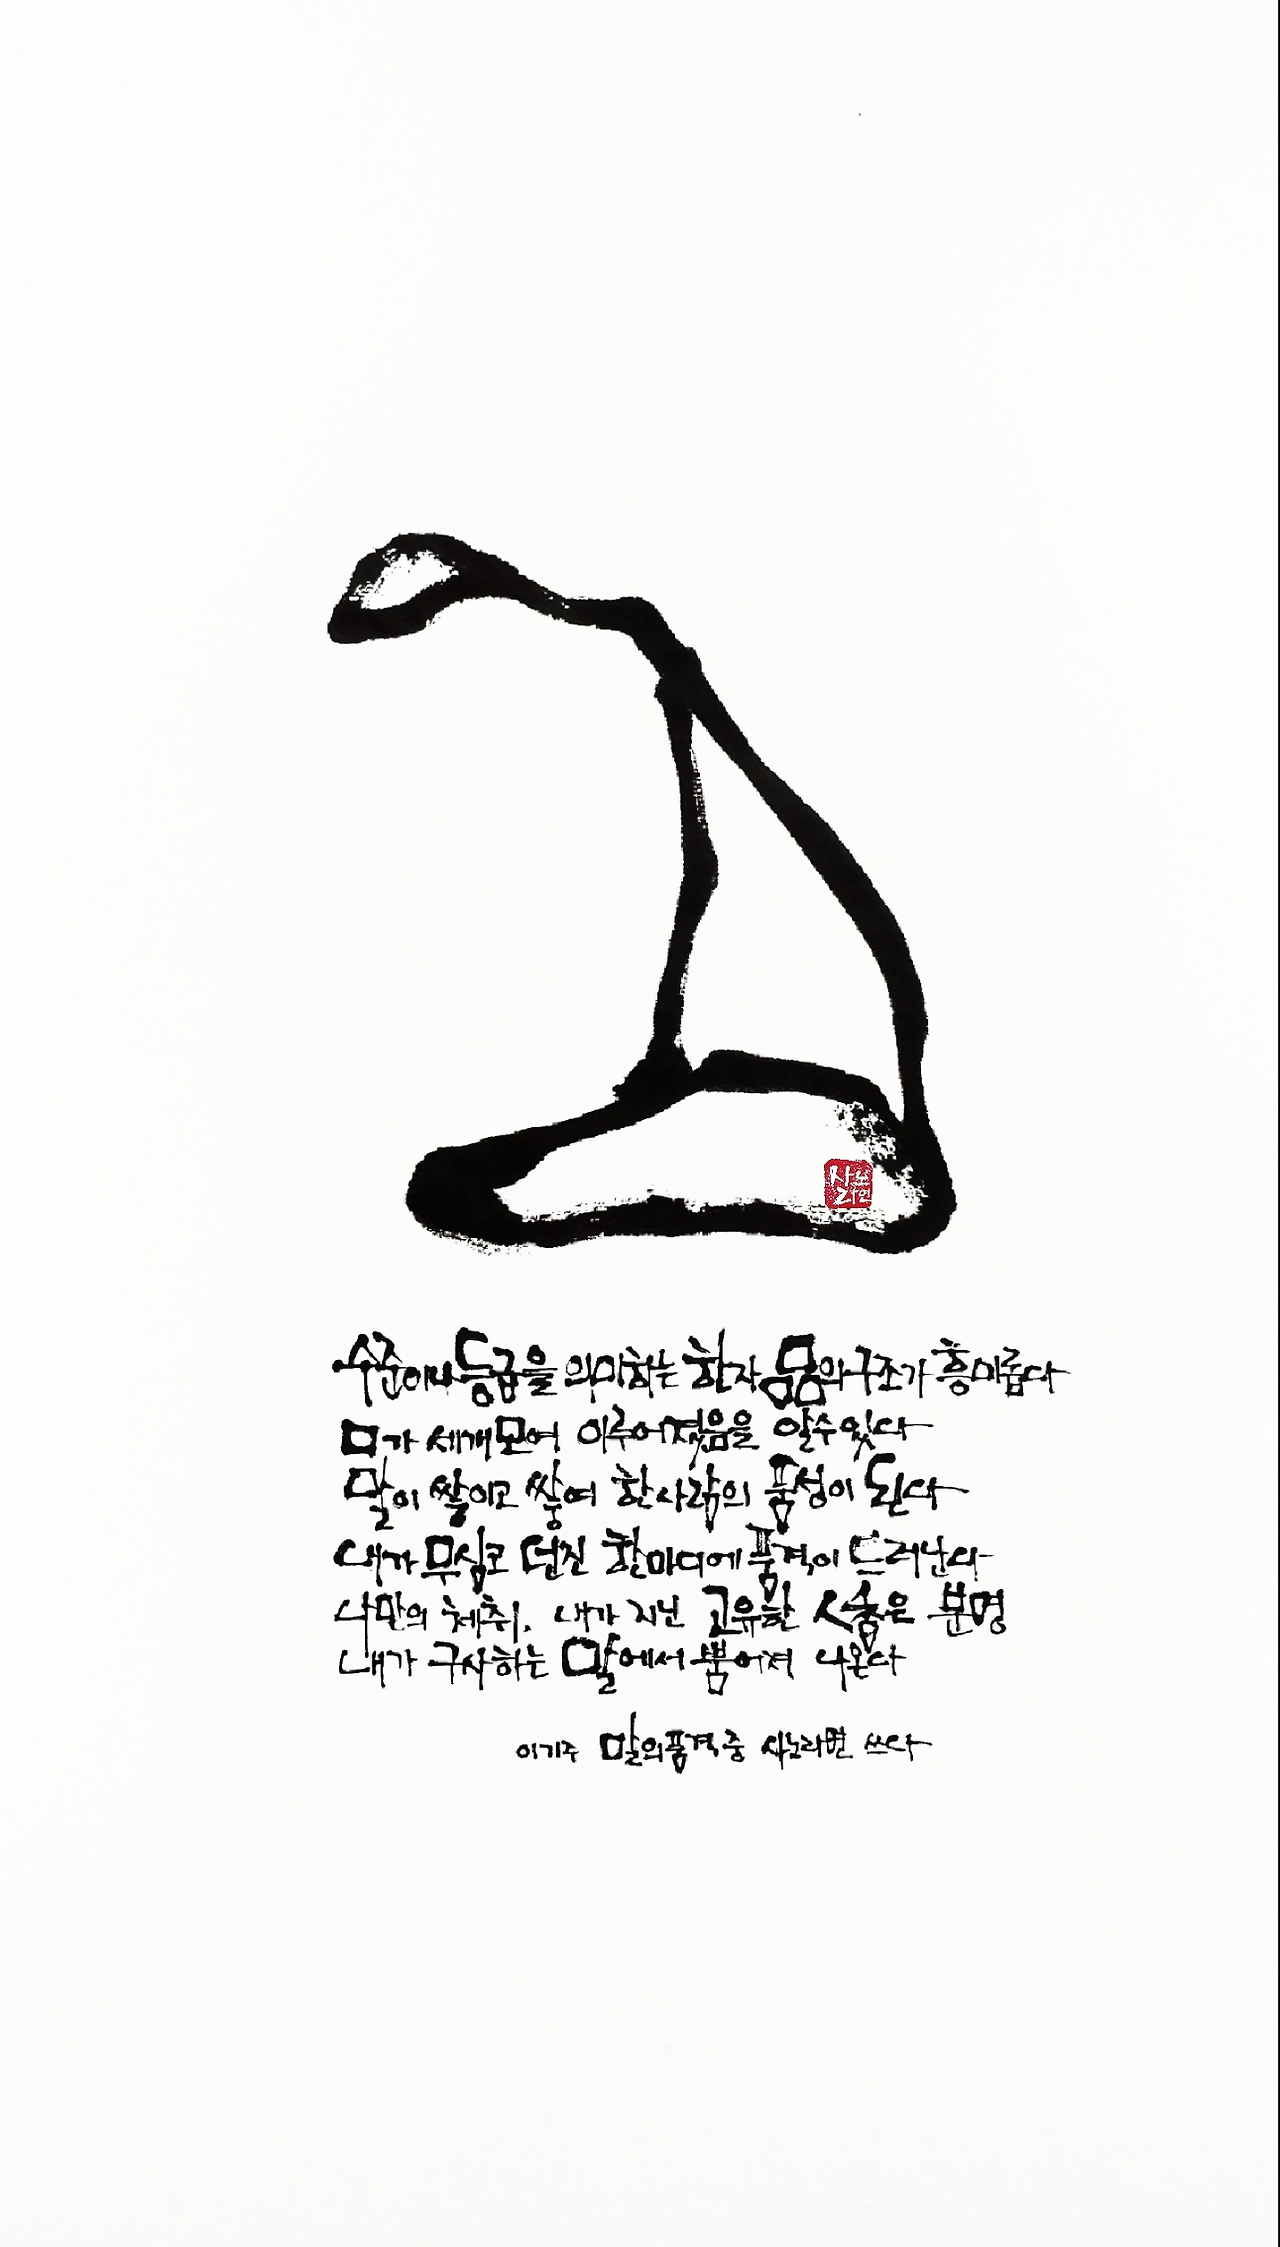 사노
라면
수준이나 등급을 의미하는 한자 品의 구조가 흥미롭다
口가 세개 모여 이루어졌음을 알 수 있다
말이 쌓이고 쌓여 한 사람의 품성이 된다
내가 무심코 던진 한마디에 품격이 드러난다
나만의 체취, 내가 지닌 고유한 人품은 분명
내가 구사하는 말에서 뿜어져 나온다
이기주 말의 품격 중 사노라면 쓰다